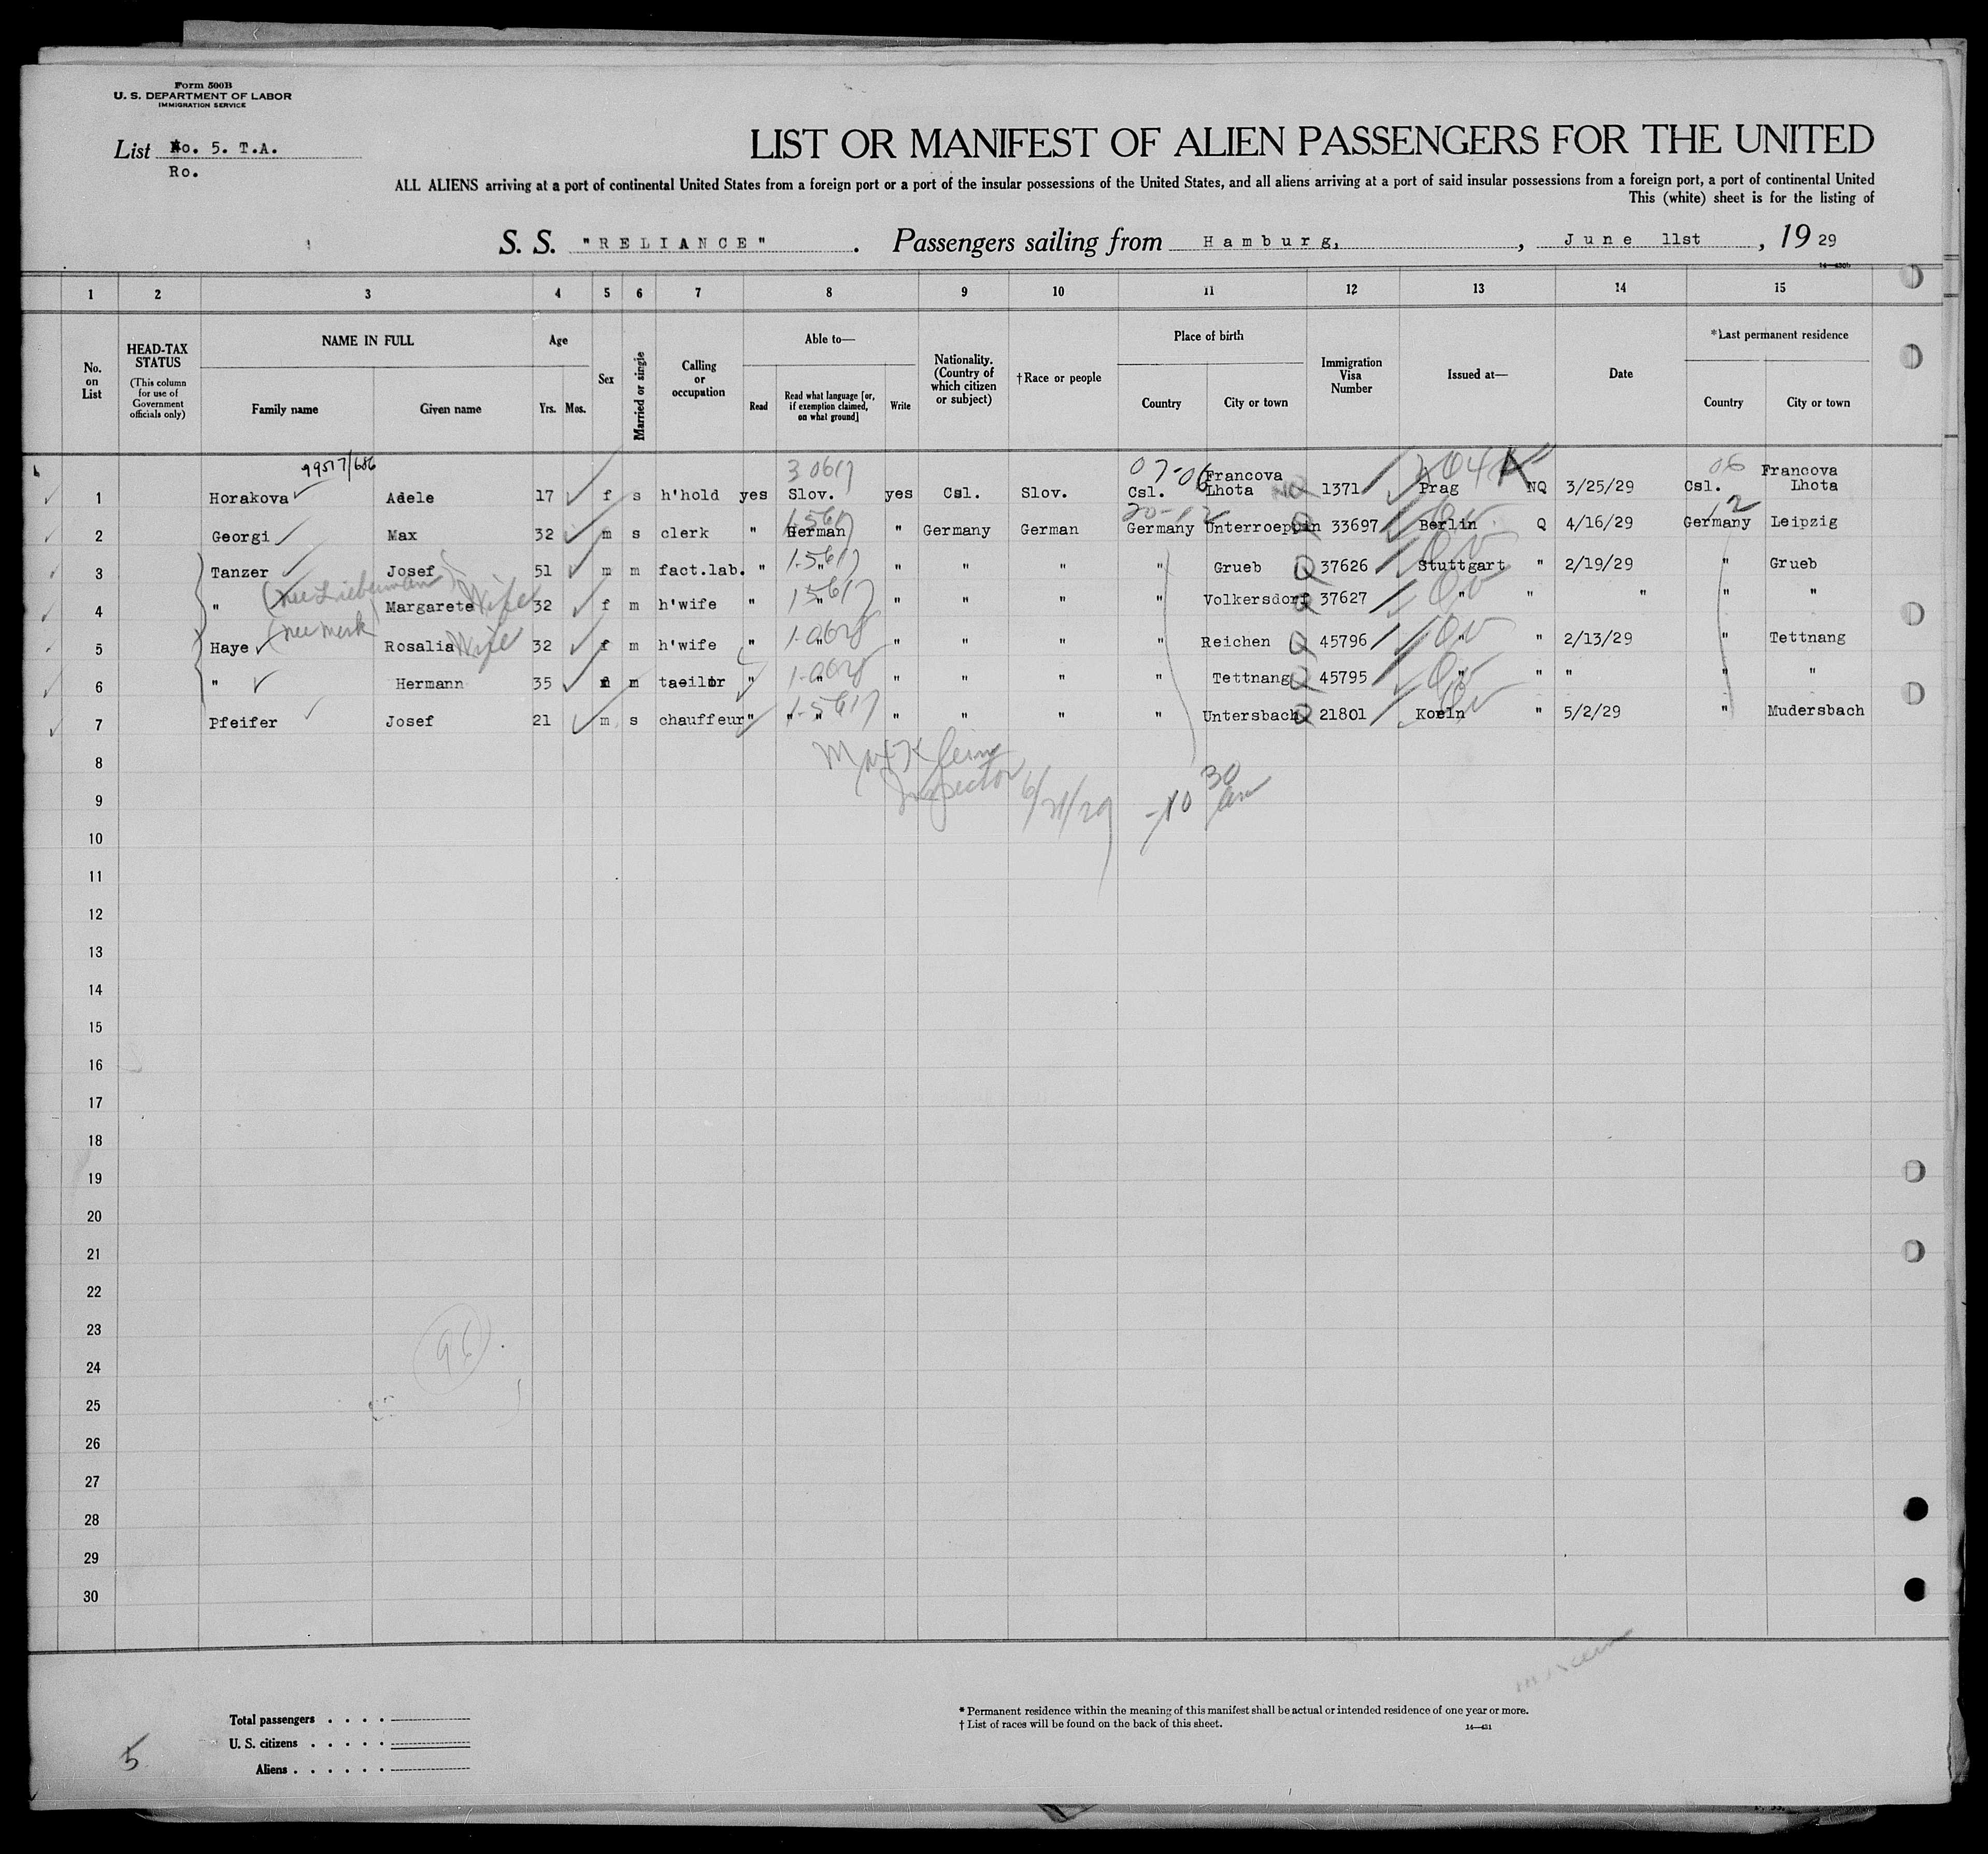 Form 500B
U. S. DEPARTMENT OF LABOR
IMMIGRATION SERVICE
List No. 5. T.A.
Ro.
LIST OR MANIFEST OF ALIEN PASSENGERS FOR THE UNITED
ALL ALIENS arriving at a port of continental United States from a foreign port or a port of the insular possessions of the United States, and all aliens arriving at a port of said insular possessions from a foreign port, a port of continental United
This (white) sheet is for the listing of
S. S. "RELIANCE". Passengers sailing from Hamburg, , June 11st , 19 29
14—430b
1 2 3 4 5 6 7 8 9 10 11 12 13 14 15
No. on List
HEAD-TAX STATUS
(This column for use of Government officials only)
NAME IN FULL
Family name Given name
Age
Yrs. Mos.
Sex
Married or single
Calling or occupation
Able to—
Read
Read what language [or, if exemption claimed, on what ground]
Write
Nationality. (Country of which citizen or subject)
†Race or people
Place of birth
Country City or town
Immigration Visa Number
Issued at—
Date
*Last permanent residence
Country City or town
99517/686 30617 07-06 Francova 06 Francova
1 Horakova Adele 17 f s h'hold yes Slov. yes Csl. Slov. Csl. Lhota NQ 1371 Prag NQ 3/25/29 Csl. Lhota
1-5617 20-12 12
2 Georgi Max 32 m s clerk " German " Germany German Germany Unterroeppin Q 33697 Berlin Q 4/16/29 Germany Leipzig
1-5617
3 Tanzer Josef 51 m m fact.lab. " " " " " " Grueb Q 37626 Stuttgart " 2/19/29 " Grueb
(nee Lieberman) 15617
4 " Margarete Wife 32 f m h'wife " " " " " Volkersdorf Q 37627 " " " " "
(nee Merk) 1-0628
5 Haye Rosalia Wife 32 f m h'wife " " " " " " Reichen Q 45796 " " 2/13/29 " Tettnang
1-0628
6 " Hermann 35 m m taeilor " " " " " " Tettnang Q 45795 " " " " "
1-5617
7 Pfeifer Josef 21 m s chauffeur " " " " " " " Untersbach Q 21801 Koeln " 5/2/29 " Mudersbach
8
Inspector 6/21/29 - 10 30 am
9
10
11
12
13
14
15
16
17
18
19
20
21
22
23
96
24
25
26
27
28
29
30
Total passengers . . . .
U. S. citizens . . . . .
Aliens . . . . . .
5
* Permanent residence within the meaning of this manifest shall be actual or intended residence of one year or more.
† List of races will be found on the back of this sheet.
14—431